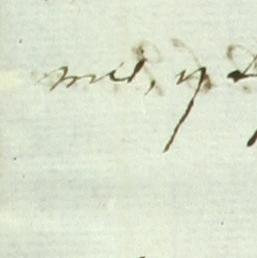 mil, y